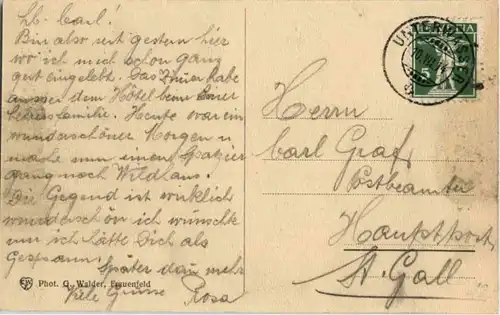 Lb. Carl!
Bin also seit gestern hier
wo ich mich schon ganz
gut eingelebt. Das Zimer habe
ausser dem Hôtel beim einer
Lehrersfamilie. Heute war ein
wunderschöner Morgen u
mache nun einen Spatzier
gang nach Wildhaus.
Die Gegend ist wirklich
wunderschön ich wünschte
nur ich hätte Dich als
Gespann.
Später dan mehr
Viele Grüsse Rosa
Phot. G. Walder, Frauenfeld
UNTERWASSER
HELVETIA
5
Herrn
Carl Graf
Postbeamter
Hauptpost
St. Gall